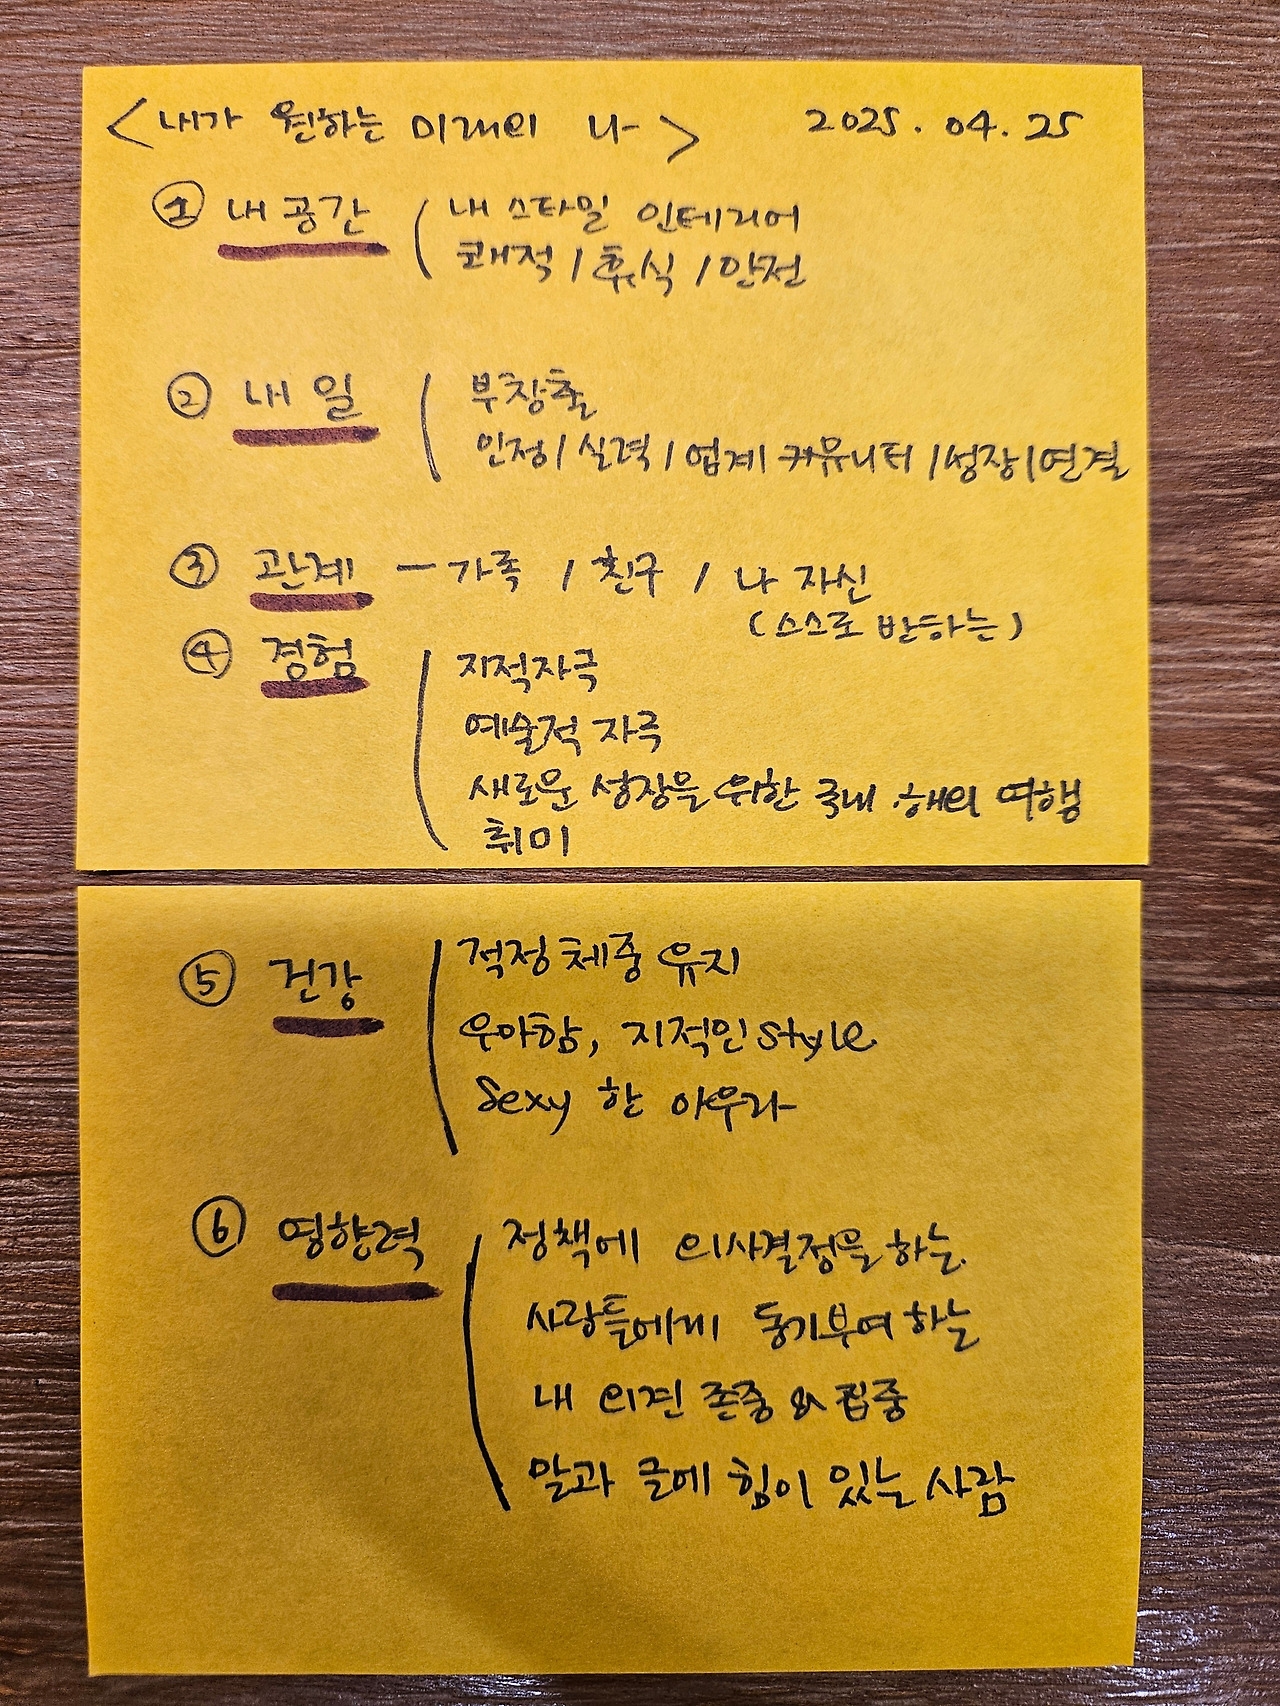 <내가 원하는 미래의 나> 2025.04.25
① 내 공간 ( 내 스타일 인테리어
쾌적 / 휴식 / 안전
② 내 일 ( 부창출
인정 / 실력 / 업계 커뮤니티 / 성장 / 연결
③ 관계 - 가족 / 친구 / 나 자신
(스스로 반하는)
④ 경험 ( 지적자극
예술적 자극
새로운 성장을 위한 국내.해외 여행
취미
⑤ 건강 ( 적정체중 유지
우아함, 지적인 style
Sexy 한 아우라
⑥ 영향력 ( 정책에 의사결정을 하는.
사람들에게 동기부여 하는
내 의견 존중 & 집중
말과 글에 힘이 있는 사람